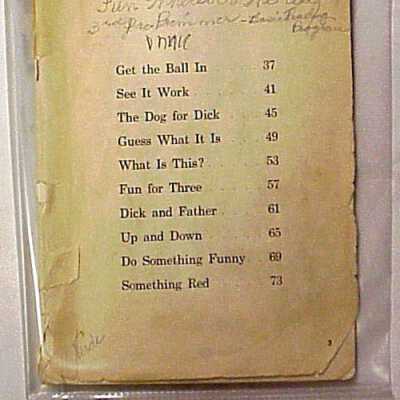 Fun Wherever We Are
3rd Pre Primmer - Basic Reading
Program
Get the Ball In 37
See It Work 41
The Dog for Dick 45
Guess What It Is 49
What Is This? 53
Fun for Three 57
Dick and Father 61
Up and Down 65
Do Something Funny 69
Something Red 73
3